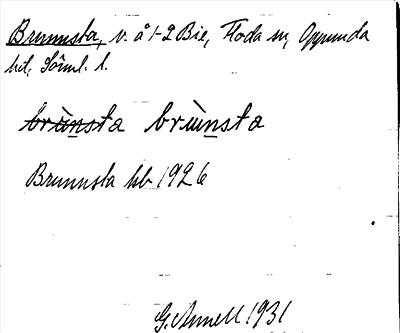 Brunnsta, v. å 1-2 Bie, Floda sn, Oppunda
hd, Söml. l.
brùn̲sta brùn̲sta
Brunnsta hb 1926
G. Annell 1931